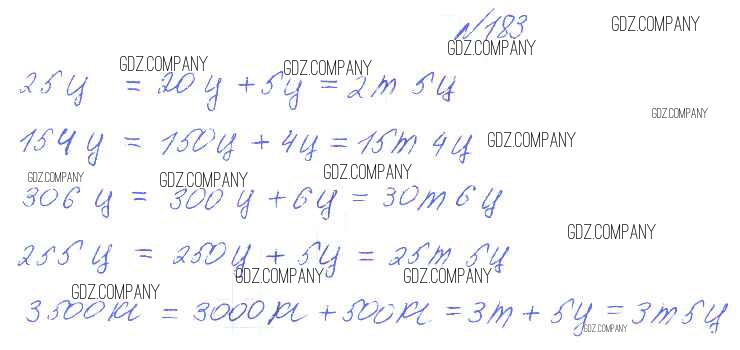 №183
GDZ.COMPANY
GDZ.COMPANY
GDZ.COMPANY
GDZ.COMPANY
25 ц = 20 ц + 5 ц = 2 т 5 ц
GDZ.COMPANY
154 ц = 150 ц + 4 ц = 15 т 4 ц
GDZ.COMPANY
GDZ.COMPANY
GDZ.COMPANY
GDZ.COMPANY
306 ц = 300 ц + 6 ц = 30 т 6 ц
GDZ.COMPANY
255 ц = 250 ц + 5 ц = 25 т 5 ц
GDZ.COMPANY
GDZ.COMPANY
GDZ.COMPANY
3500 кг = 3000 кг + 500 кг = 3 т + 5 ц = 3 т 5 ц
GDZ.COMPANY